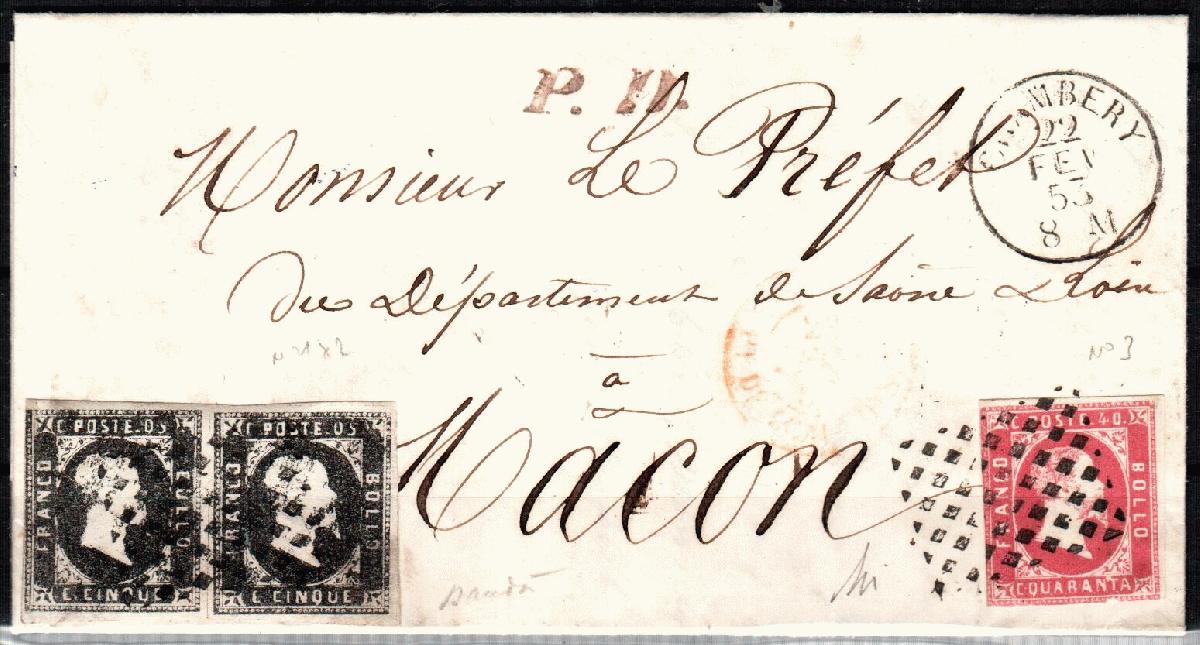 P. D.
CHAMBERY
22
FEV
53
8 M
Monsieur Le Préfet
du Département de Saône & Loire
à
Macon
N° 3
C POSTE. 05
FRANCO
BOLLO
C. CINQUE
C POSTE. 05
FRANCO
BOLLO
C. CINQUE
C. POSTE 40.
FRANCO
BOLLO
C. QUARANTA